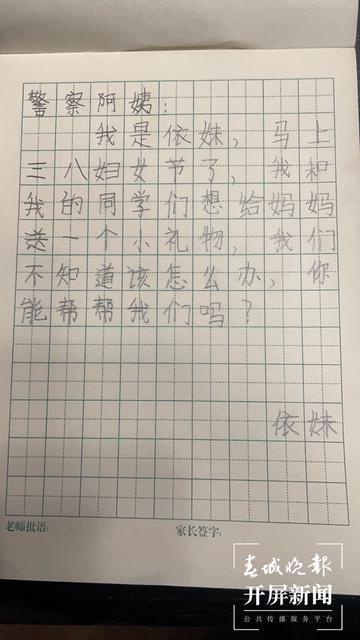 警察阿姨：
我是依妹，马上
三八妇女节了，我和
我的同学们想给妈妈
送一个小礼物，我们
不知道该怎么办，你
能帮帮我们吗？
依妹
老师批语：
家长签字：
春城晚报
开屏新闻
公共传播服务平台